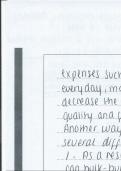 expenses suc
everyday, mo
decrease the
quality and
Another way
several diff
1. As a res
can bulk-bu